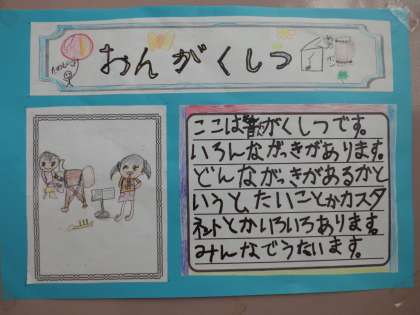 おんがくしつ
ここは音がくしつです。
いろんながっきがあります。
どんながっきがあるかと
いうと、たいことかカスタ
ネットとかいろいろあります。
みんなでうたいます。